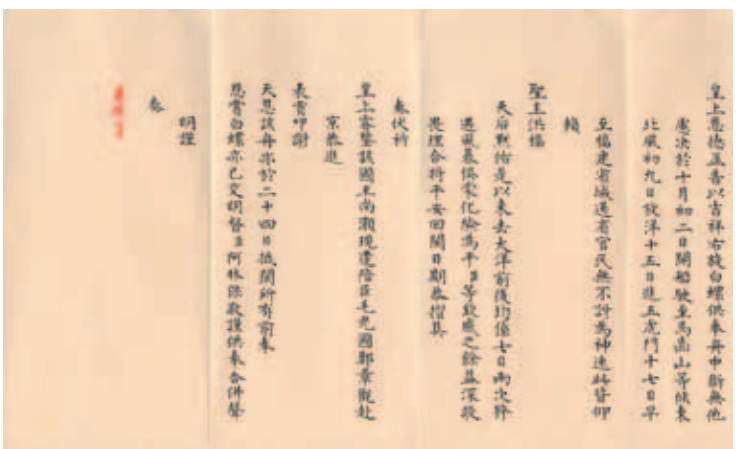 皇上恩德並香以吉祥右旋白螺供奉舟中斷無他
慮決於十月初二日開船駛至馬齒山等候東
北風初九日放洋十五日進五虎門十七日早
至福建省城邊省官民無不訝為神速此皆仰
賴
聖主洪福
天府默佑是以來去大洋前後均僅七日兩次猝
遇風暴俱蒙化險為平臣等致感之餘益深敬
畏理合將平安回閩日期恭摺具
奏伏祈
皇上睿鑒該國王尚灝現遣陪臣毛光國鄭章觀赴
京恭進
表賀叩謝
天恩該舟亦於二十四日抵閩所有前奉
恩賞白螺亦已交明督臣阿林保敬謹供奉合併聲
明謹
奏